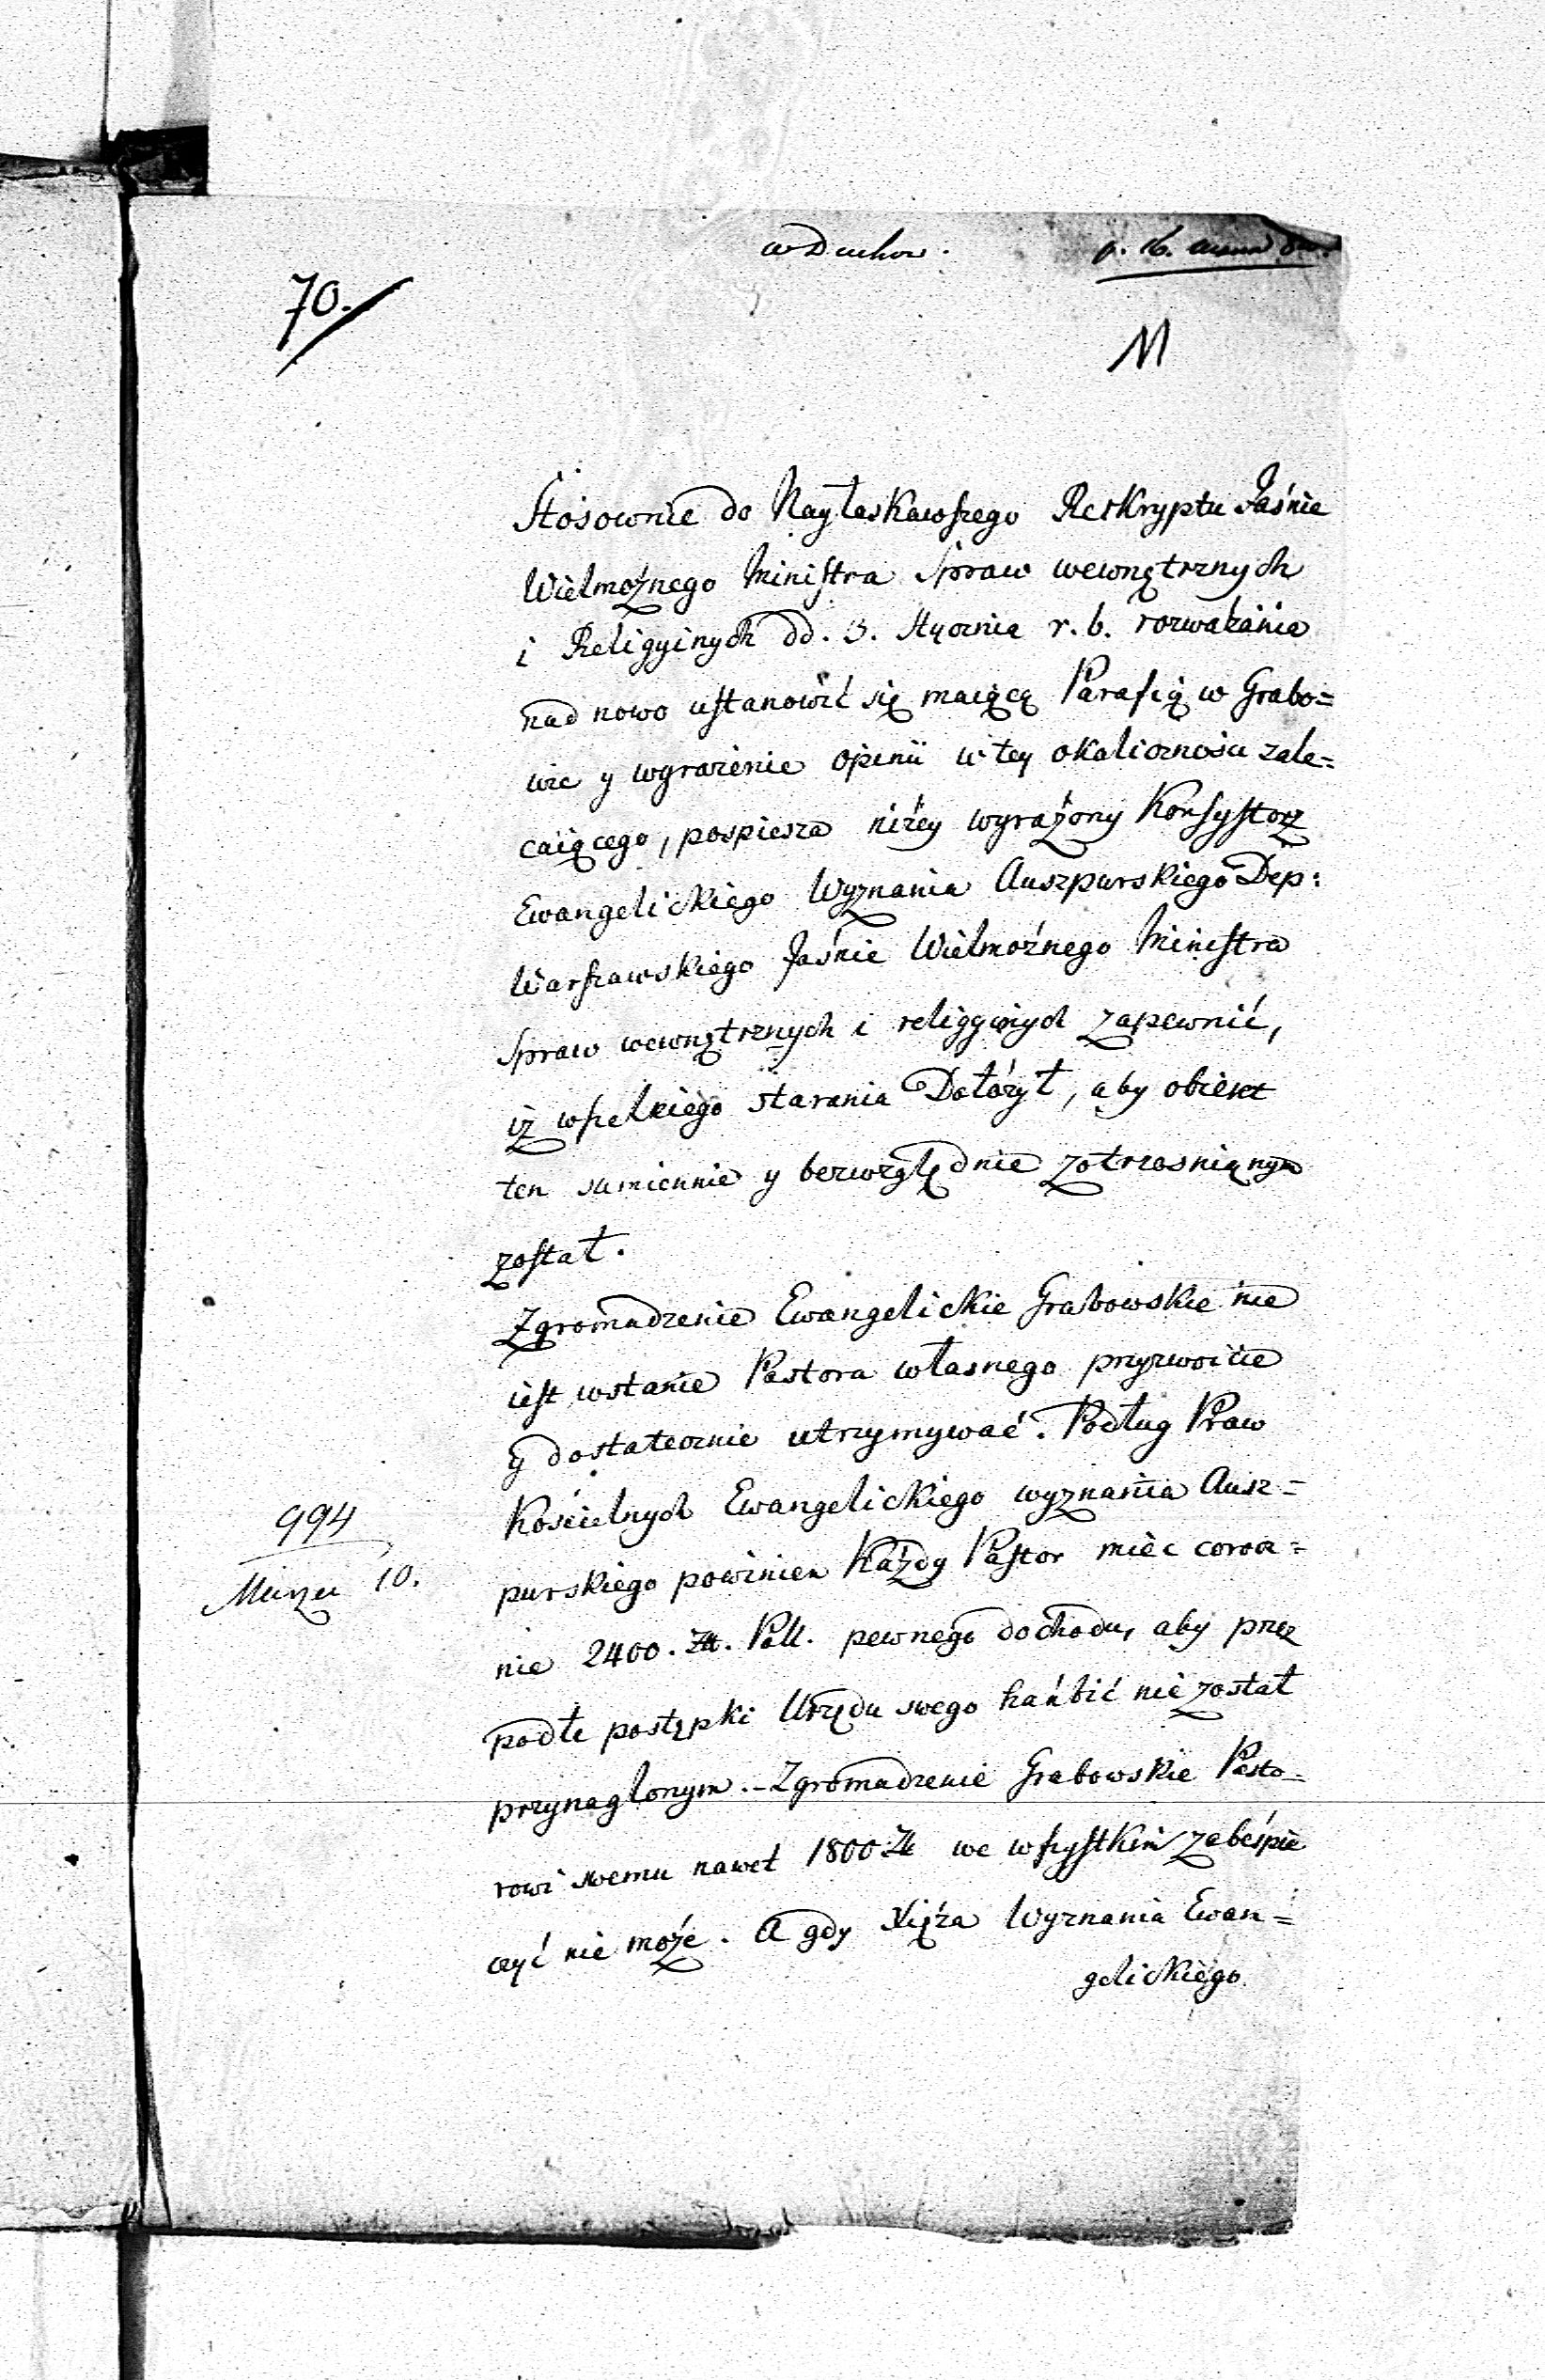 w Duchow.
p. 16.
70.
M
Stosownie do Nayłaskawszego Reskryptu Jaśnie
Wielmożnego Ministra Spraw wewnętrznych
i Religyinych dd. 3. Stycznia r. b. rozważania
nad nowo ustanowić się maiącą Parafią w Grabo=
wie y wyrażenie opinii w tey okaliczności zale=
caiącego, pospiesza niżey wyrażony Konsystorz
Ewangelickiego Wyznania Auszpurskiego Dep:
Warszawskiego Jaśnie Wielmożnego Ministra
Spraw wewnętrznych i religyinych zapewnić,
iż wszelkiego starania Dołożył, aby obiekt
ten sumiennie y bezwzględnie zotrzasnięnym
został.
Zgromadzenie Ewangelickie Grabowskie nie
iest wstanie Pastora własnego przyzwoicie
y dostatecznie utrzymywać. Podług Praw
Kościelnych Ewangelickiego wyznania Ausz=
purskiego powinien Każdy Pastor mieć corocz=
nie 2400. Zł. Poll. pewnego dochodu, aby przez
podłe postępki Urzędu swego hańbić nie został
przynaglonym. – Zgromadzenie Grabowskie Pasto=
rowi swemu nawet 1800 Zł we wszystkim zabespie
czyć nie może. A gdy Xięża Wyznania Ewan=
gelickiego
994
Marzu 10.